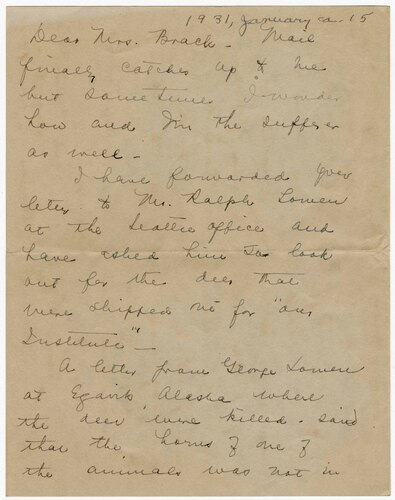 1931, January a. 15
Dear Mrs. Brack - Mail
finally catches up to me
but sometimes I wonder
how and I'm the sufferer
as well -
I have forwarded your
letter to Mr. Ralph Lomen
at the Seattle office and
have asked him to look
out for the deer that
were shipped out for "our
Institute" -
A letter from George Lomen
at Egavik, Alaska where
the deer were killed - said
that the horns of one of
the animals was not in